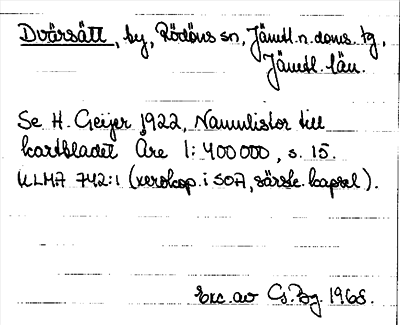 Dvärsätt, by, Rödöns sn, Jämtl. n. doms. tg,
Jämtl. län.
Se H. Geijer 1922, Namnlistor till
kartbladet Åre 1:400000, s. 15.
ULMA 742:1 (xerokop. i SOA, särsk. kapsel).
Exc. av Cs. Bg. 1968.